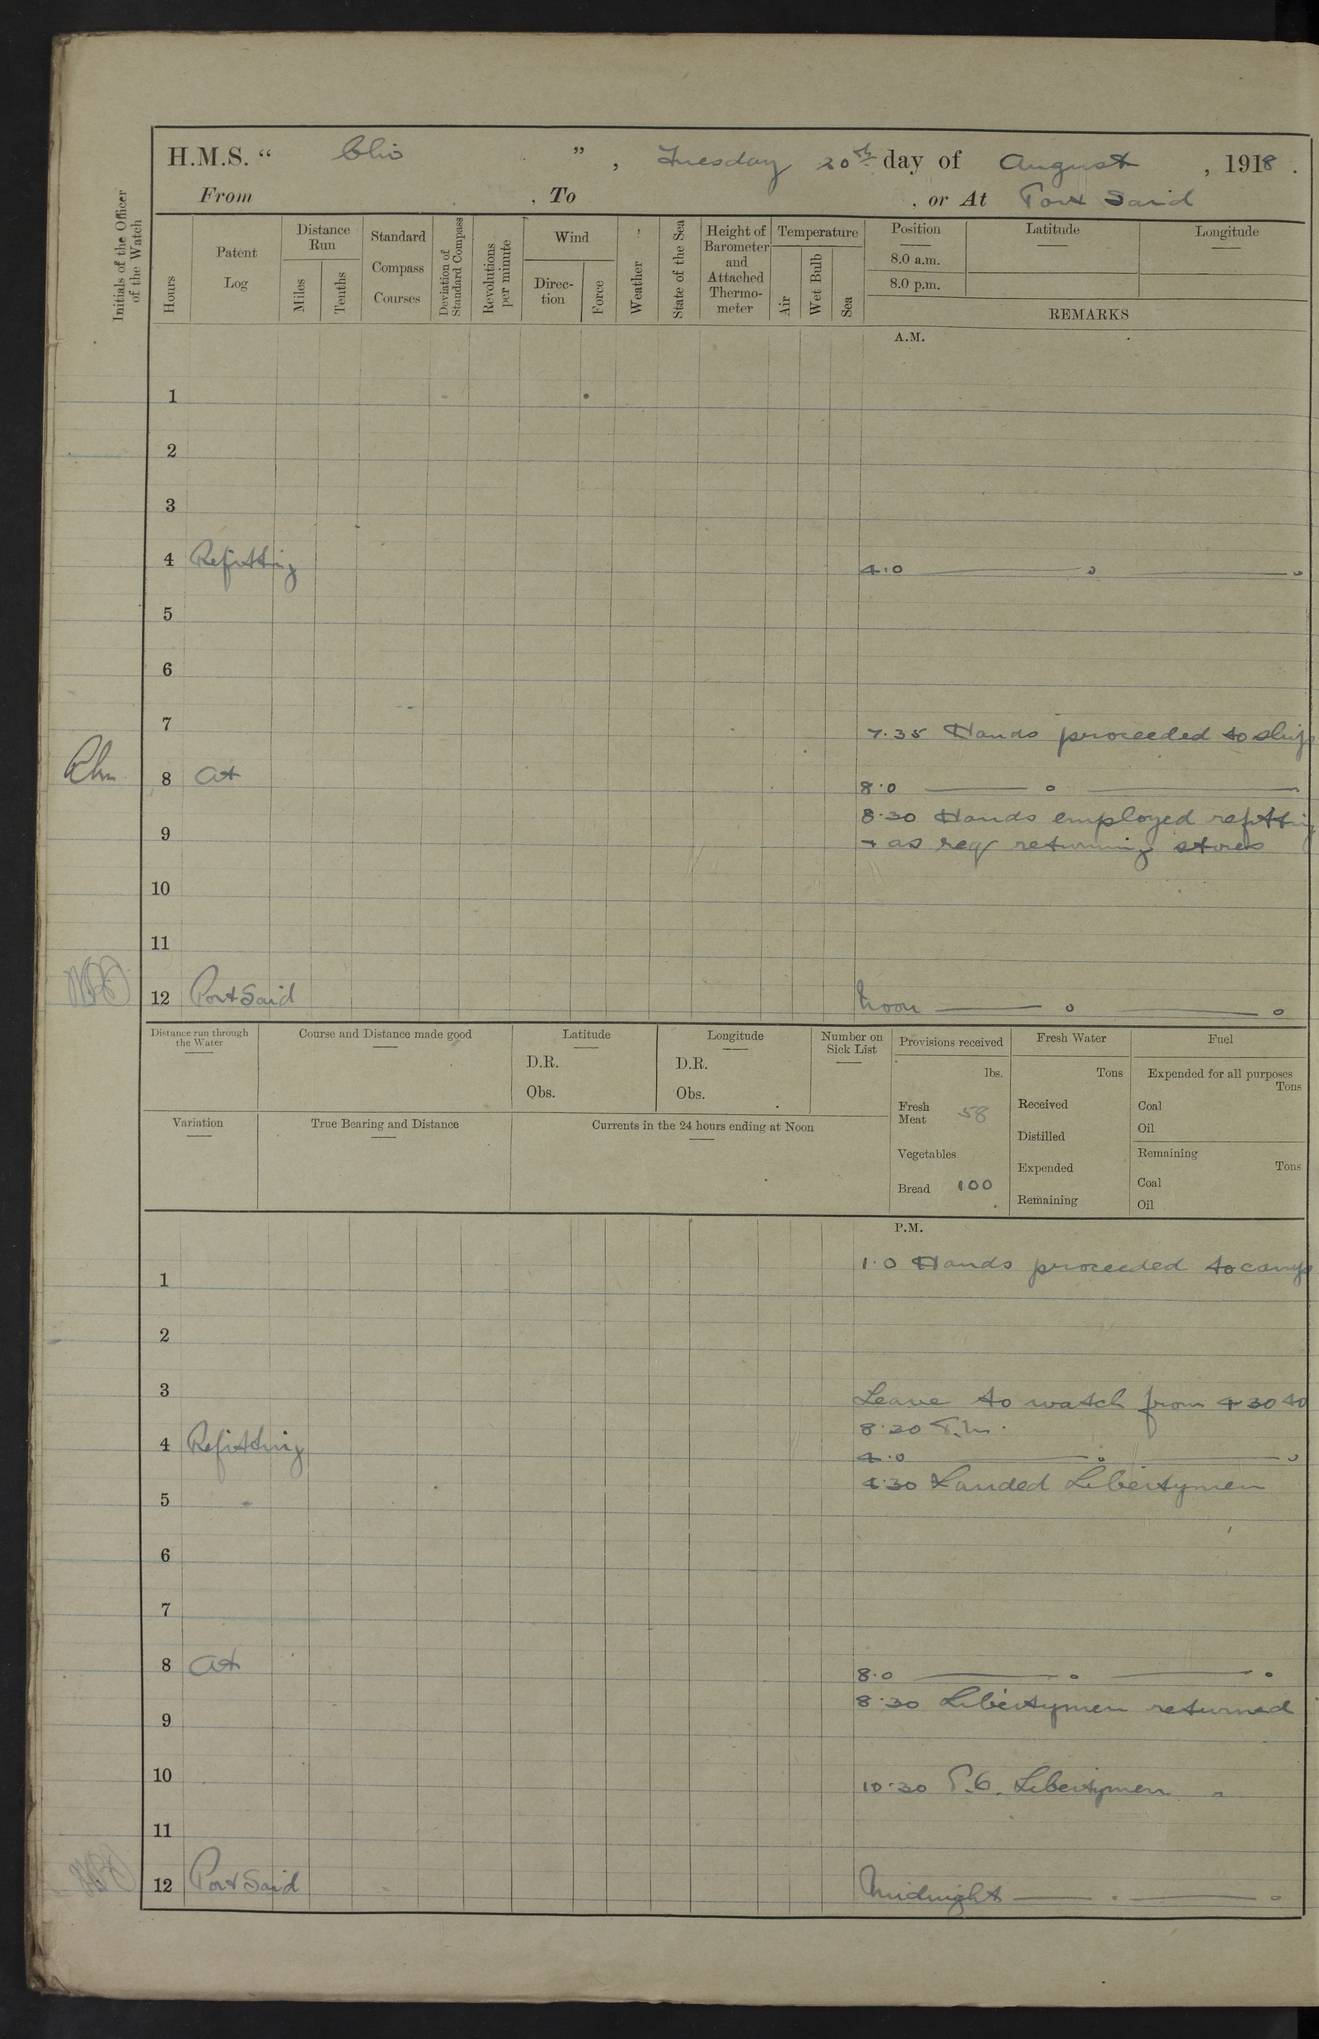 H.M.S. “ Clio ” , Tuesday 20th day of August , 1918 .
From , To , or At Port Said
Initials of the Officer of the Watch
Hours
Patent Log
Distance Run
Miles
Tenths
Standard Compass Courses
Deviation of Standard Compass
Revolutions per minute
Wind
Direction
Force
Weather
State of the Sea
Height of Barometer and Attached Thermometer
Temperature
Air
Wet Bulb
Sea
Position Latitude Longitude
8.0 a.m.
8.0 p.m.
REMARKS
A.M.
1
2
3
4 Refitting 4.0
5
6
7
7.35 Hands proceeded to ship
8 At 8.0
8.30 Hands employed refitting
9
+ as req returning stores
10
11
12 Port Said Noon
Distance run through the Water
Course and Distance made good
Latitude
D.R.
Obs.
Longitude
D.R.
Obs.
Number on Sick List
Provisions received
lbs.
Fresh Meat 58
Vegetables
Bread 100
Fresh Water
Tons
Received
Distilled
Expended
Remaining
Fuel
Expended for all purposes
Tons
Coal
Oil
Remaining
Tons
Coal
Oil
Variation
True Bearing and Distance
Currents in the 24 hours ending at Noon
P.M.
1.0 Hands proceeded to camp
1
2
3
Leave to watch from 4 30 to
8.30 P.M.
4 Refitting 4.0
4.30 Landed Libertymen
5
6
7
8 At 8.0
8.30 Libertymen returned
9
10 10.30 P.O. Libertymen "
11
12 Port Said Midnight